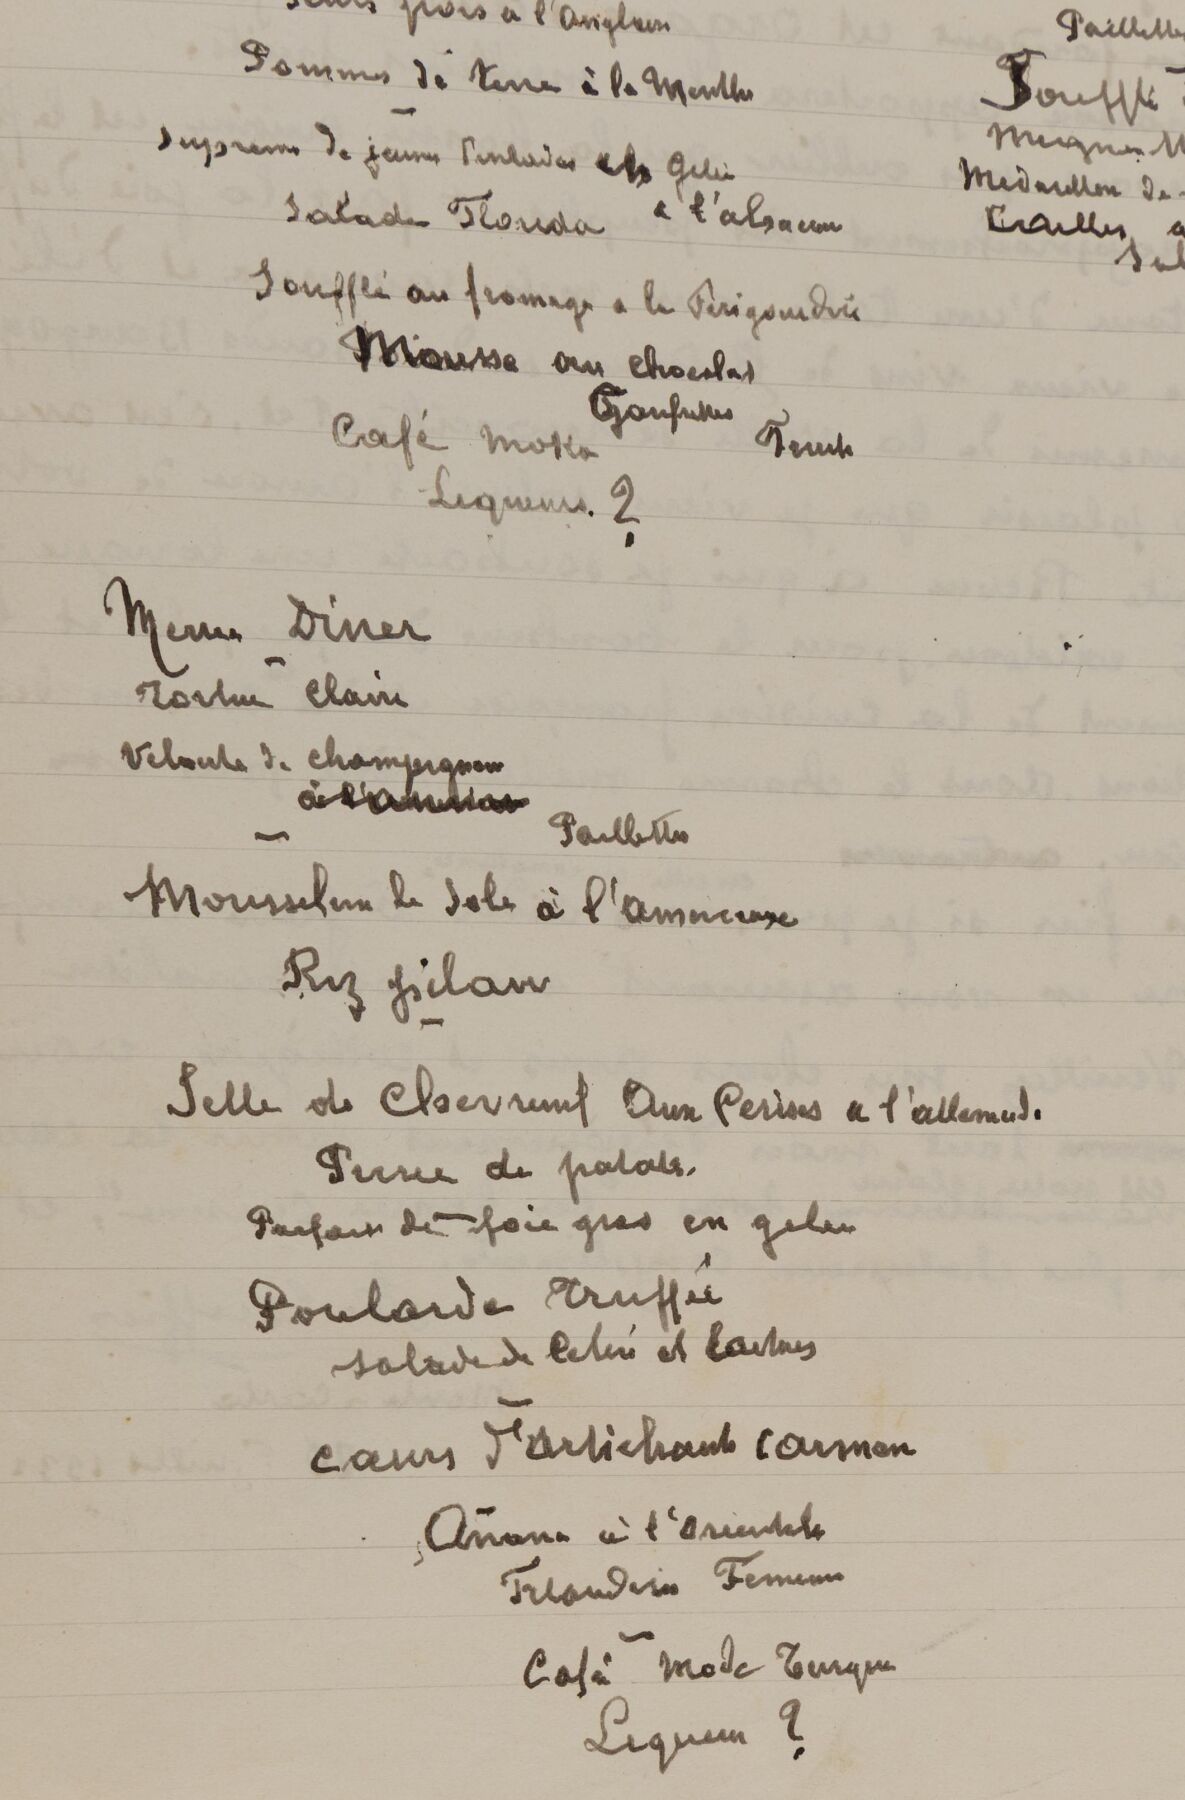 pois à l'Anglaise
Pommes de terre à la Menthe
Supreme de jeunes Poulardes en Gelée
Salade Florida à l'alsacienne
Soufflé au fromage a la Périgourdine
Mousse au chocolat
Gaufrettes
Café Moka Fruits
Liqueurs. ?
Paillettes
Soufflé
Medaillon de
Cailles
Sal
Menu Diner
Tortue Claire
Velouté de champignons
à l'
Paillettes
Mousseline de Sole à l'amoricaine
Riz pilaw
Selle de Chevreuil Aux Cerises a l'allemande
Puree de patate.
Parfait de foie gras en gelee
Poularde truffée
Salade de Celeri et Laitues
Cœurs d'Artichauts Carmen
Anana à l'Orientale
Friandises Femina
Café Mode Turque
Liqueur ?